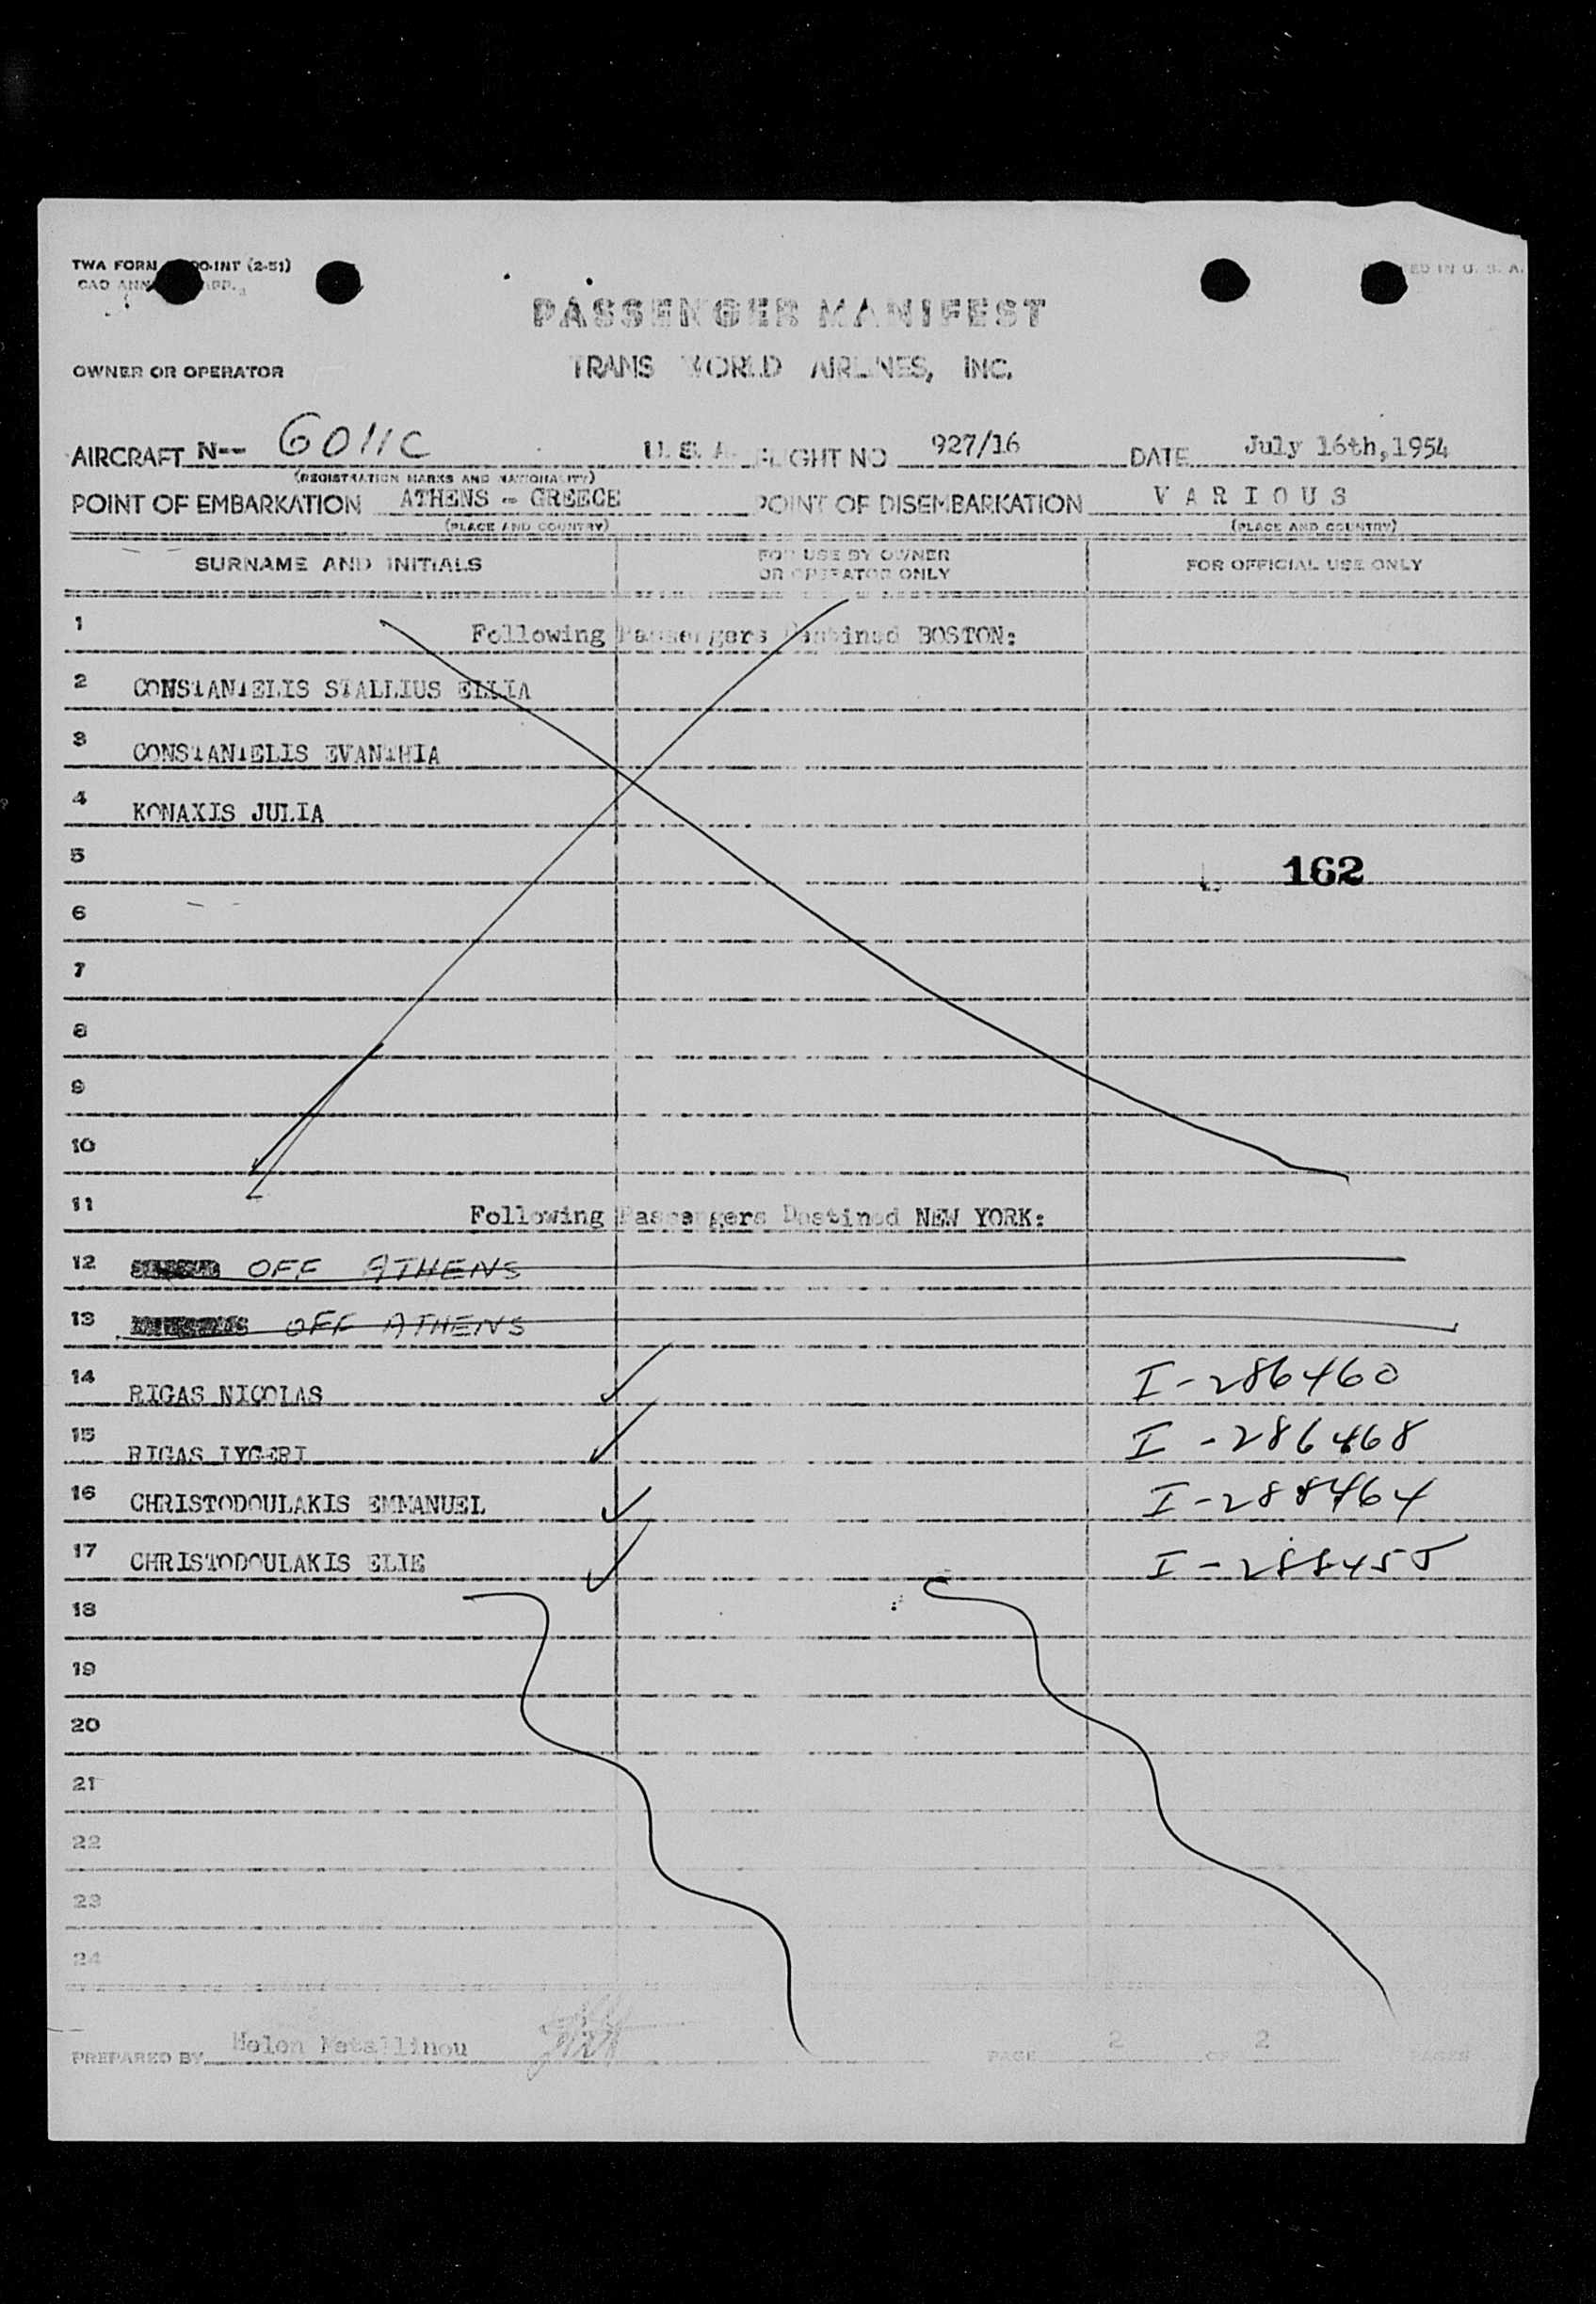 TWA FORM
CAO ANN
PASSENGER MANIFEST
OWNER OR OPERATOR TRANS WORLD AIRLINES, INC.
AIRCRAFT N-- 6011C U. S. A. FLIGHT NO 927/16 DATE July 16th,1954
(REGISTRATION MARKS AND NATIONALITY)
POINT OF EMBARKATION ATHENS - GREECE POINT OF DISEMBARKATION VARIOUS
(PLACE AND COUNTRY) (PLACE AND COUNTRY)
SURNAME AND INITIALS FOR USE BY OWNER OR OPERATOR ONLY FOR OFFICIAL USE ONLY
1 Following Passengers Destined BOSTON:
2 CONSTANTELIS STALLIUS ELLIA
3 CONSTANTELIS EVANTHIA
4 KONAXIS JULIA
5 162
6
7
8
9
10
11 Following Passengers Destined NEW YORK:
12 OFF ATHENS
13 OFF ATHENS
14 RIGAS NICOLAS I-286460
15 RIGAS LYGERI I-286468
16 CHRISTODOULAKIS EMMANUEL I-288464
17 CHRISTODOULAKIS ELIE I-288455
18
19
20
21
22
23
24
PREPARED BY Helen Metallinou PAGE 2 OF 2 PAGES